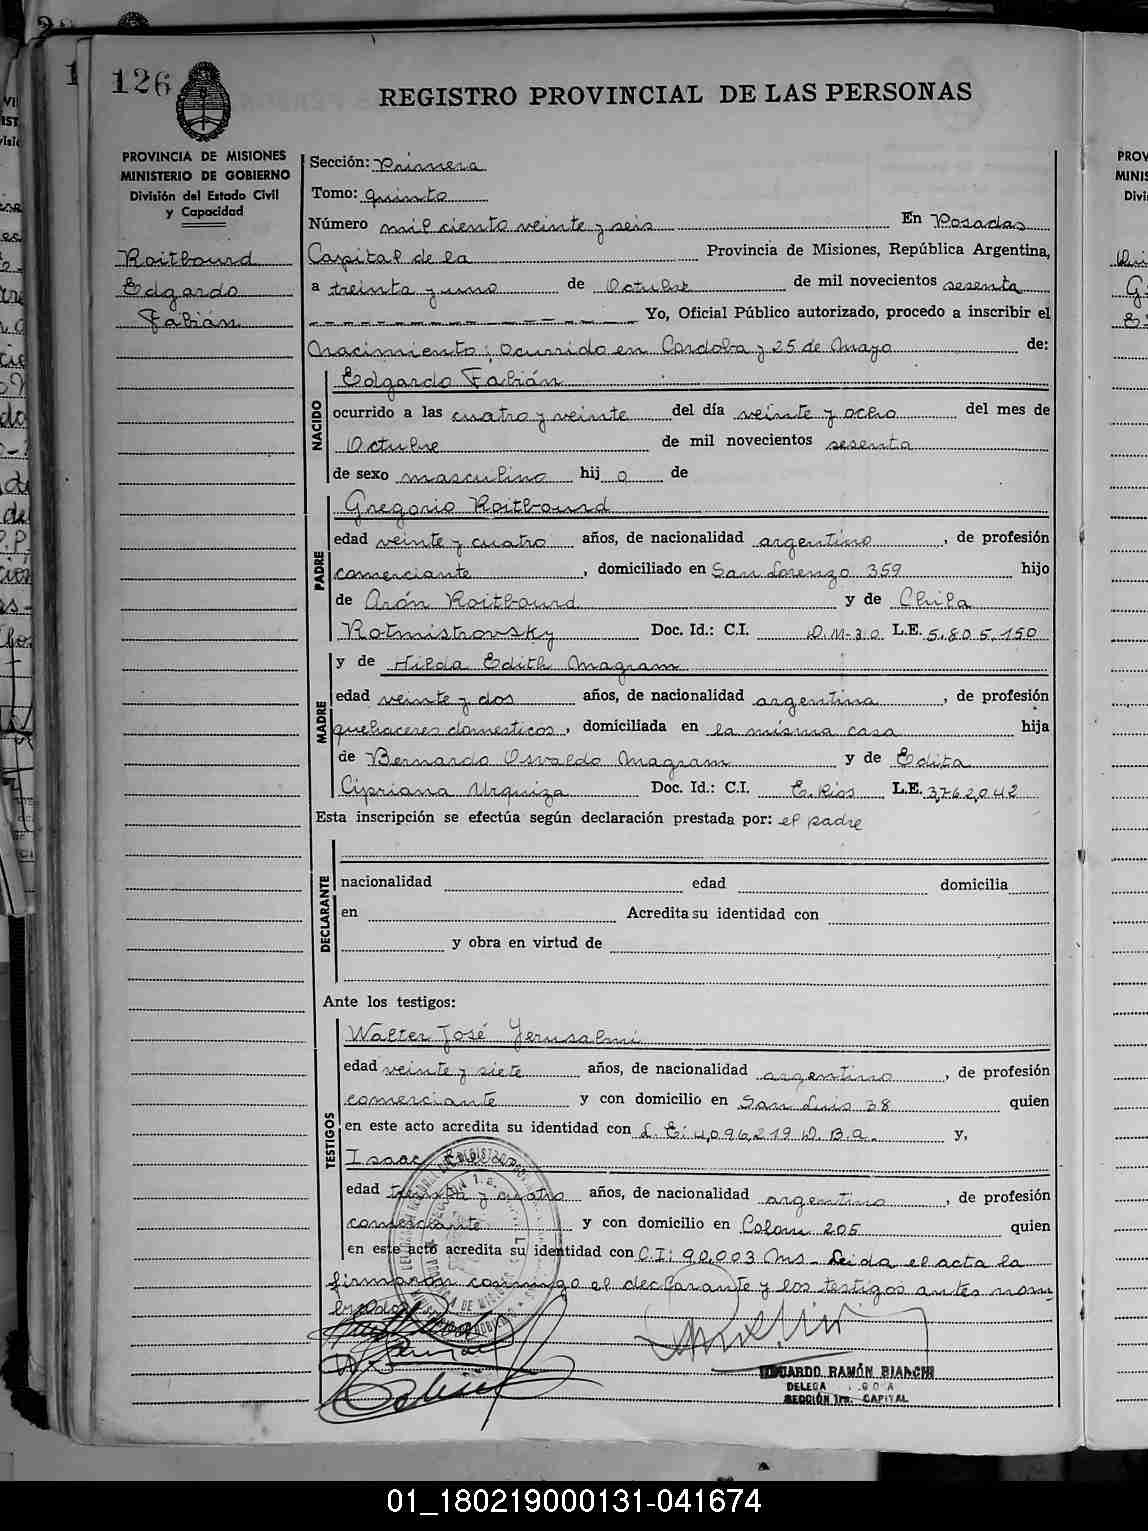 126
REGISTRO PROVINCIAL DE LAS PERSONAS
PROVINCIA DE MISIONES
MINISTERIO DE GOBIERNO
División del Estado Civil
y Capacidad
Roitbourd
Edgardo
Fabián
Sección: Primera
Tomo: quinto
Número mil ciento veinte y seis En Posadas
Capital de la Provincia de Misiones, República Argentina,
a treinta y uno de Octubre de mil novecientos sesenta
Yo, Oficial Público autorizado, procedo a inscribir el
Nacimiento; ocurrido en Cordoba y 25 de Mayo de:
NACIDO
Edgardo Fabián
ocurrido a las cuatro y veinte del día veinte y ocho del mes de
Octubre de mil novecientos sesenta
de sexo masculino hij o de
PADRE
Gregorio Roitbourd
edad veinte y cuatro años, de nacionalidad argentino, de profesión
comerciante, domiciliado en San Lorenzo 359 hijo
de Arón Roitbourd y de Chila
Rotmistrovsky Doc. Id.: C.I. D.M-30 L.E. 5.805.150
MADRE
y de Hilda Edith Magram
edad veinte y dos años, de nacionalidad argentina, de profesión
quehaceres domesticos, domiciliada en la misma casa hija
de Bernardo Osvaldo Magram y de Edita
Cipriana Urquiza Doc. Id.: C.I. E.Rios L.E. 3,762,042
Esta inscripción se efectúa según declaración prestada por: el padre
DECLARANTE
nacionalidad edad domicilia
en Acredita su identidad con
y obra en virtud de
Ante los testigos:
TESTIGOS
Walter José Jerusalmi
edad veinte y siete años, de nacionalidad argentino, de profesión
comerciante y con domicilio en San Luis 38 quien
en este acto acredita su identidad con L.E: 4,096,219 D.B.A. y,
Isaac
edad treinta y cuatro años, de nacionalidad argentino, de profesión
comerciante y con domicilio en Colon 205 quien
en este acto acredita su identidad con C.I: 90,003 Ms. Leida el acta la
firmaron conmigo el declarante y los testigos antes nom
brados
EDUARDO RAMÓN BIANCHI
SECCIÓN 1ra. CAPITAL
01_180219000131-041674